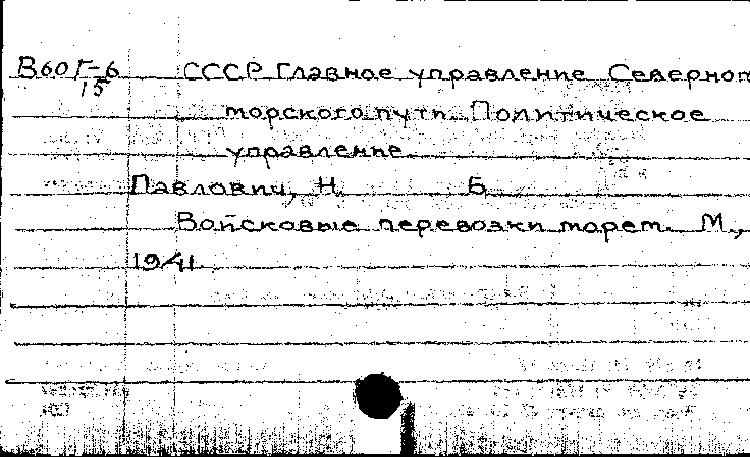 В60Г-6 СССР Главное управление Северног
15
морского пути. Политическое
управление.
Павлович, Н. Б.
Войсковые перевозки морем. М.,
1941.